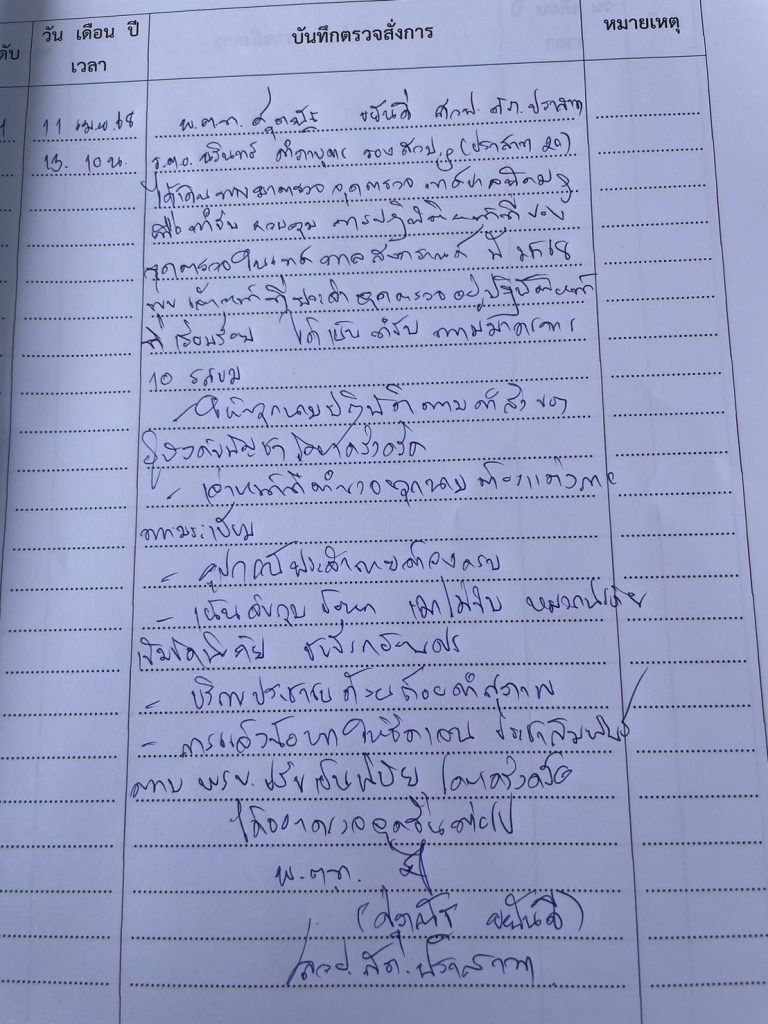 ดับ
วัน เดือน ปี
เวลา
บันทึกตรวจสั่งการ
หมายเหตุ
1 11 เม.ย. 68 พ.ต.ท. ขยันดี สวป. สภ. ปราสาท
13.10 น. ร.ต.อ. นรินทร์ รอง สวป.ฯ (ปราสาท 20)
ได้เดินทางมาตรวจ จุดตรวจ
เพื่อกำชับ ควบคุม การปฏิบัติหน้าที่ของ
จุดตรวจในเทศกาลสงกรานต์ ปี 2568
พบ เจ้าหน้าที่ประจำจุดตรวจอยู่ปฏิบัติหน้าที่
เรียบร้อย ได้เน้น กำชับ ตามมาตรการ
10 รสขม
ให้ทุกนายปฏิบัติตามคำสั่งของ
ผู้บังคับบัญชาโดยเคร่งครัด
- เจ้าหน้าที่ตำรวจทุกนาย ต้องแต่งกาย
ตามระเบียบ
- อุปกรณ์ประจำกายต้องครบ
- เน้นจับกุม ข้อหา เมาไม่ขับ หมวกนิรภัย
เข็มขัดนิรภัย
- บริการประชาชนด้วยถ้อยคำสุภาพ
- การแจ้งข้อหาให้ชัดเจน ประชาสัมพันธ์
ตาม พรบ. ปรับเป็นพินัย โดยเคร่งครัด
ได้ออกตรวจจุดอื่นต่อไป
พ.ต.ท.
( ขยันดี)
สวป.สภ.ปราสาท